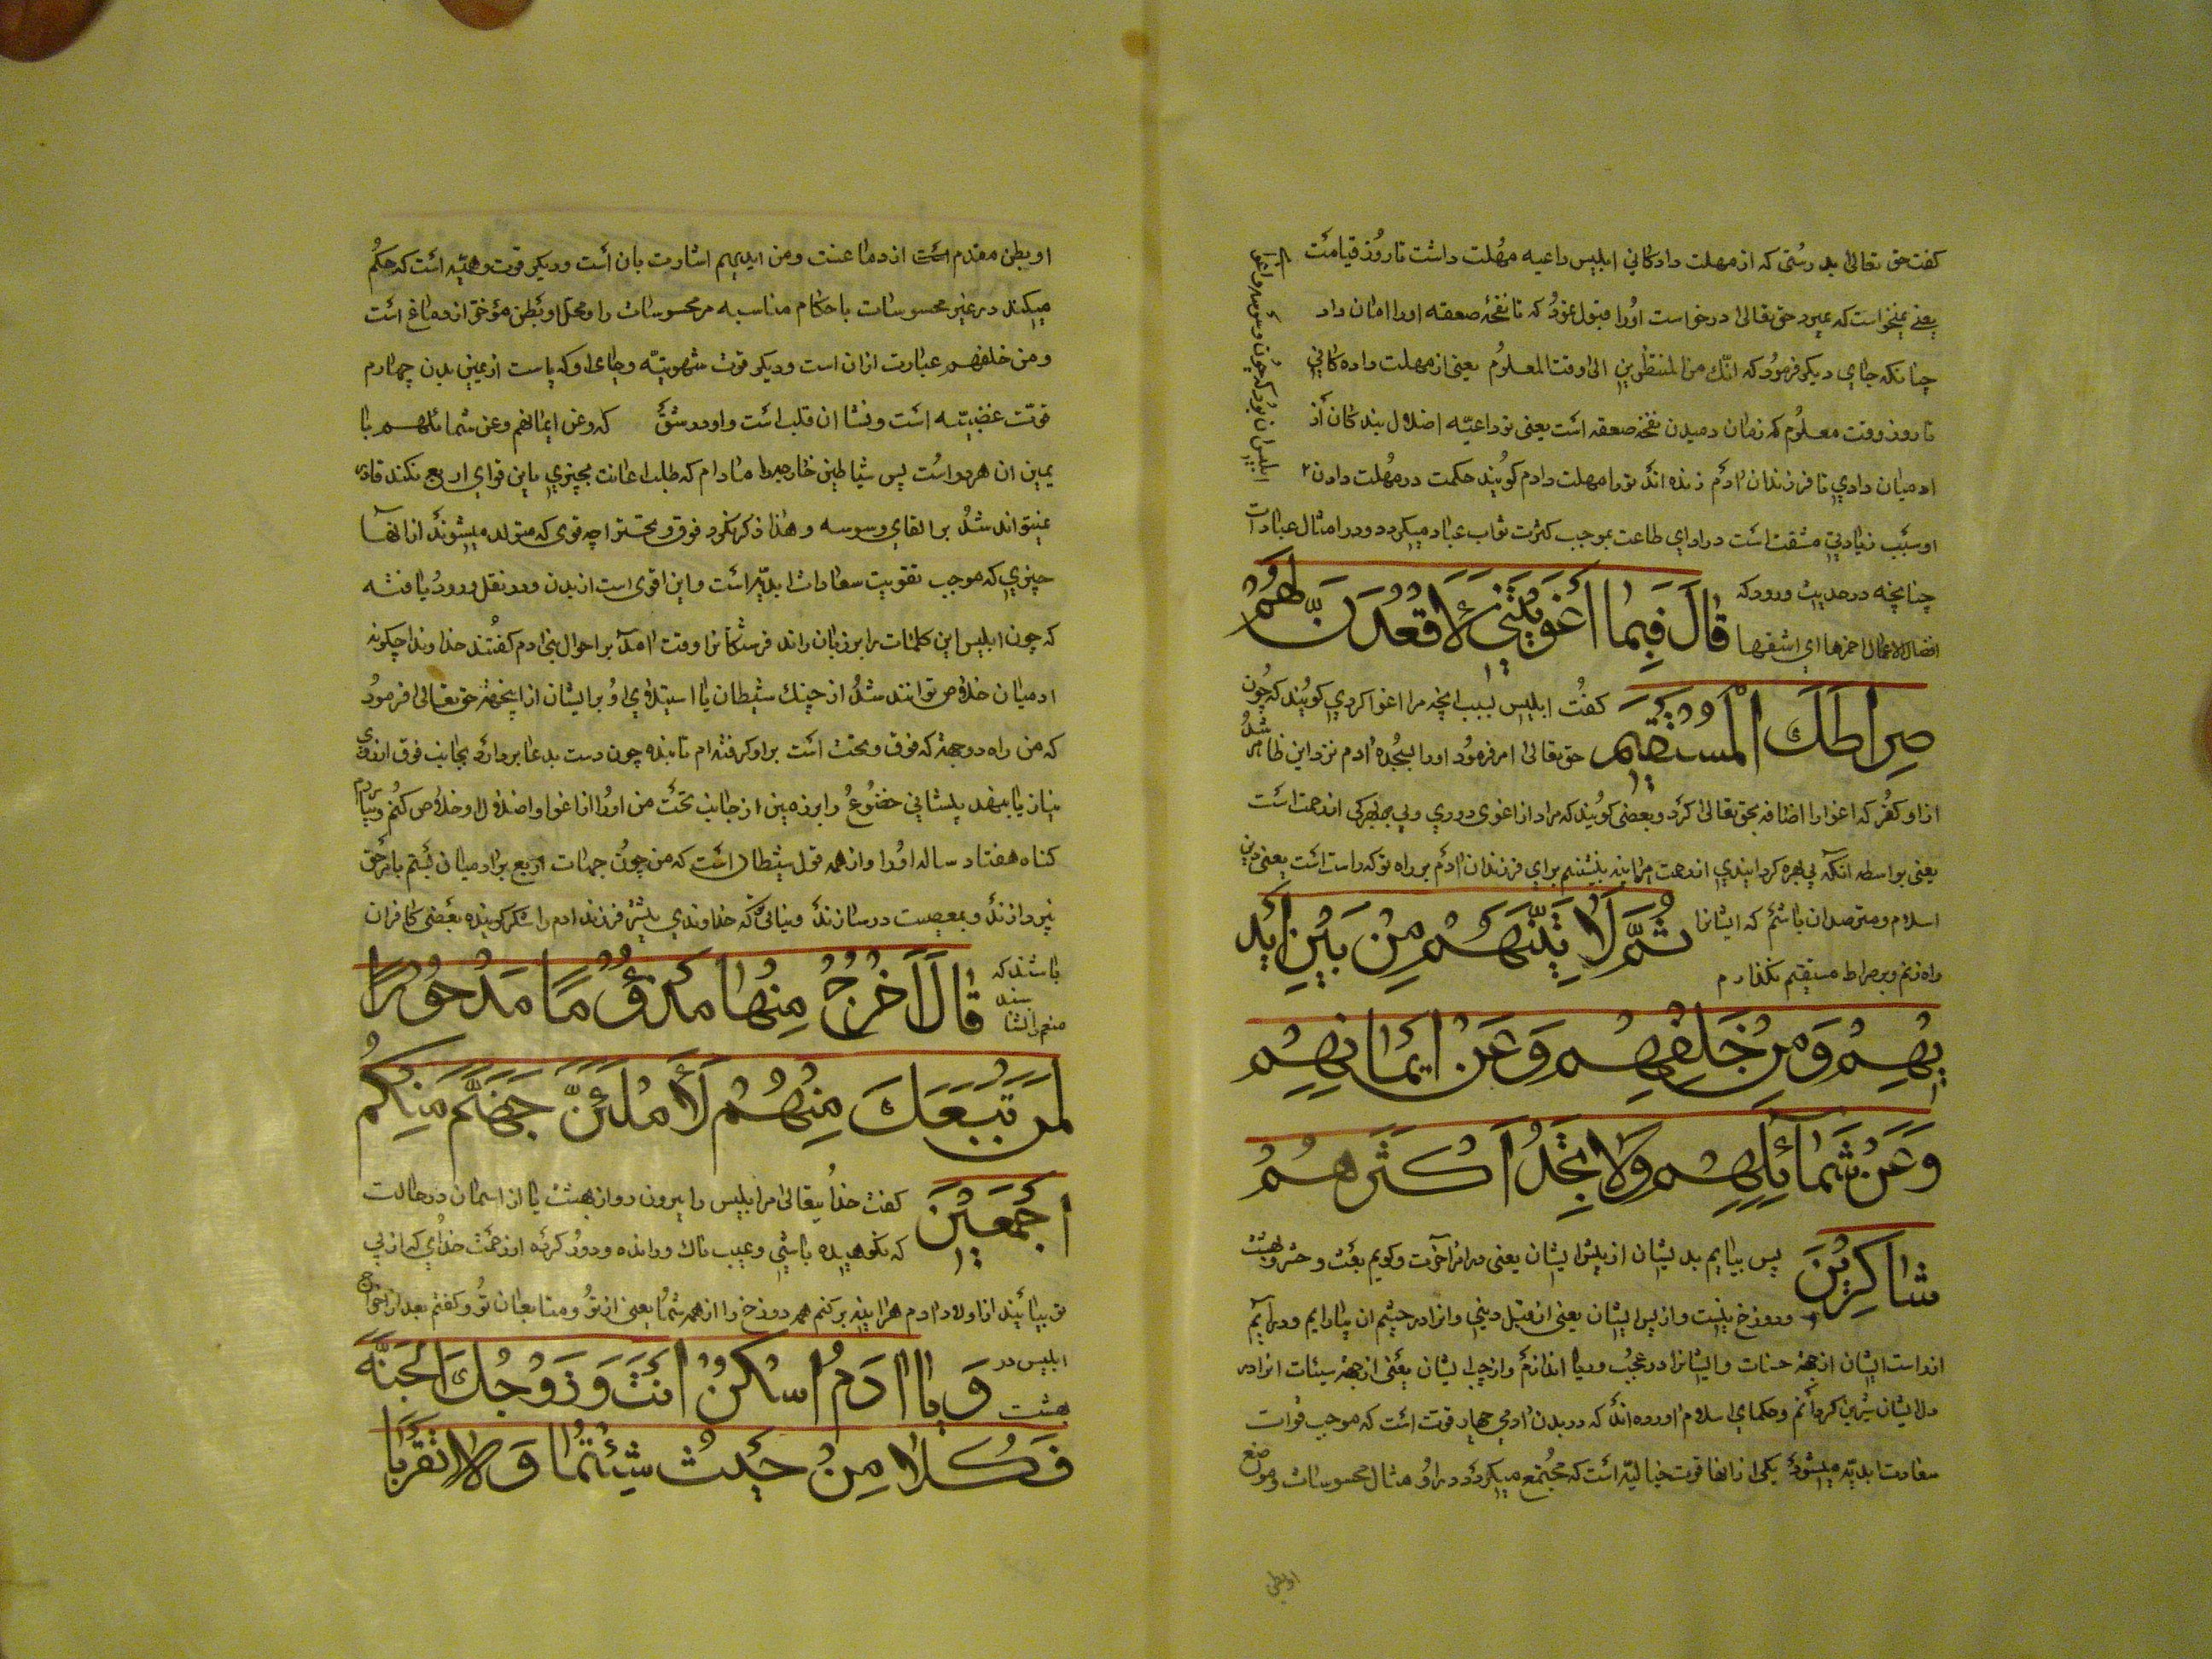 گفت حق تعالی بدرستی که از مهلت دادکانی ابلیس داعیه مهلت داشت تا روز قیامت
یعنی نمیخواست که بمیرد حق تعالی درخواست او را قبول نمود که تا نفخه صعقه او را امان داد
چنانکه جای دیکر فرمود که انّك من المنتظرین الی وقت المعلوم یعنی از مهلت داده کانی
تا روز وقت معلوم که زمان دمیدن نفخه صعقه است یعنی تو داعیّه اضلال بندکان از
ادمیان داری تا فرزندان ادم زنده اند تو را مهلت دادم کویند حکمت در مهلت دادن
او سبب زیادتی مشقت است در ادای طاعت بموجب کثرت ثواب عباد میکردد و در امثال عبادات
چنانچه در حدیث ورود که
افضل الاعمال احمزها ای اشقها
قَالَ فَبِمَا اَغْوَیْتَنِی لَاَقْعُدَنَّ لَهُمْ
صِرَاطَكَ الْمُسْتَقِیمَ
کفت ابلیس بسبب انچه مرا اغوا کردی کویند که چون
حق تعالی امر فرمود او را بسجده ادم نزد این ظاهر شد
از او کفر که اغوا را اضافه بحق تعالی کرد و بعضی کویند که مراد از اغوی دوری و بی بهرکی اندهت است
یعنی بواسطه آنکه بی بهره کردانیدی اندهت هراینه بنشینم برای فرزندان ادم بر راه تو که راست است یعنی دین
اسلام و مترصدان باشم که ایشانرا
راه زنم و بر صراط مستقیم نکذارم
ثُمَّ لَاٰتِیَنَّهُمْ مِنْ بَیْنِ اَیْدِ
یهِمْ وَمِنْ خَلْفِهِمْ وَعَنْ اَیْمَانِهِمْ
وَعَنْ شَمَآئِلِهِمْ وَلَا تَجِدُ اَکْثَرَهُمْ
شَاکِرِیْنَ
پس بیایم بدیشان از پیش ایشان یعنی در امر آخرت و کویم بعث و حشر و بهشت
و دوزخ نیست و از پس ایشان یعنی از قبل دینی و انرا در چشم ان بیارایم و درآیم
از راست ایشان از جهة حسنات و ایشانرا در عجب و ریا اندازم و از چپ ایشان یعنی از جهة سیئات انرا در
دل ایشان شیرین کردانم و حکمای اسلام اورده اند که در بدن ادمی چهار قوت است که موجب فوات
سعادت ابدیّه میشود یکی از انها قوت خیالیّه است که مجتمع میکردد در او مثال محسوسات و موضع
اوبطن
او بطن مقدم است از دماغست ومن ایدیهم اشارت بان است و دیکر قوت وهمیّه است که حکم
میکند در غیر محسوسات باحکام مناسبه مر محسوسات را و محل او بطن مؤخر از دماغ است
ومن خلفهم عبارت از ان است و دیکر قوت شهویّه و جای او که پاست از یمین بدن چهارم
قوّت غضبیّه است و نشان قلب است و او در شقّ که وعن ایمانهم وعن شمائلهم با
یمین ان هر دو است پس شیاطین خارجه را مادام که طلب اعانت بچیزی باین قوای اربع نکند قادر
نمیتواند شد بر القای وسوسه و هذا ذکر نکرد فوق و تحت را چه قوی که متولد میشوند از انها
چیزی که موجب تقویت سعادات ابدیّه است و این اقوی است از بدن و در نقل ورود یافته
که چون ابلیس این کلمات را بر زبان راند فرشتکانرا وقت امد بر احوال بنی ادم کفتند خداوندا چکونه
ادمیان خلاص توانند شد از چنك شیطان با استیلای او بر ایشان از این جهة حق تعالی فرمود
که من راه دو جهة که فوق و تحت است بر او کرفته ام تا بنده چون دست بدعا بردارد بجانب فوق از روی
نیاز یا بنهد پیشانی خضوع را بر زمین از جانب تحت من او را از اغوا و اضلال او خلاص کنم و بیامرزم
کناه هفتاد ساله او را و از همه قول شیطان است که من چون جهات اربع بر ادمیان بستم بامر حق
نپردازند و بمعصیت درسازند و نیابی که خداوندی بیشتر فرزند ادم را شکر کوینده بعضی کافران
باشند که
منعم را نشناسند
قَالَ اخْرُجْ مِنْهَا مَذْؤُمًا مَدْحُوْرًا
لَمَنْ تَبِعَكَ مِنْهُمْ لَاَمْلَئَنَّ جَهَنَّمَ مِنْکُمْ
اَجْمَعِیْنَ
کفت خدایتعالی مر ابلیس را بیرون رو از بهشت یا از اسمان در حالت
که نکوهیده باشی و عیب ناك و رانده و دور کرده از رحمت خدای که از پی
تو بیایند از اولاد ادم هراینه پر کنم همه دوزخ را از همه شما یعنی از تو و متابعان تو و کفتم بعد از اخراج
ابلیس در
بهشت
وَیَا اٰدَمُ اسْکُنْ اَنْتَ وَزَوْجُكَ الْجَنَّةَ
فَکُلَا مِنْ حَیْثُ شِئْتُمَا وَلَا تَقْرَبَا